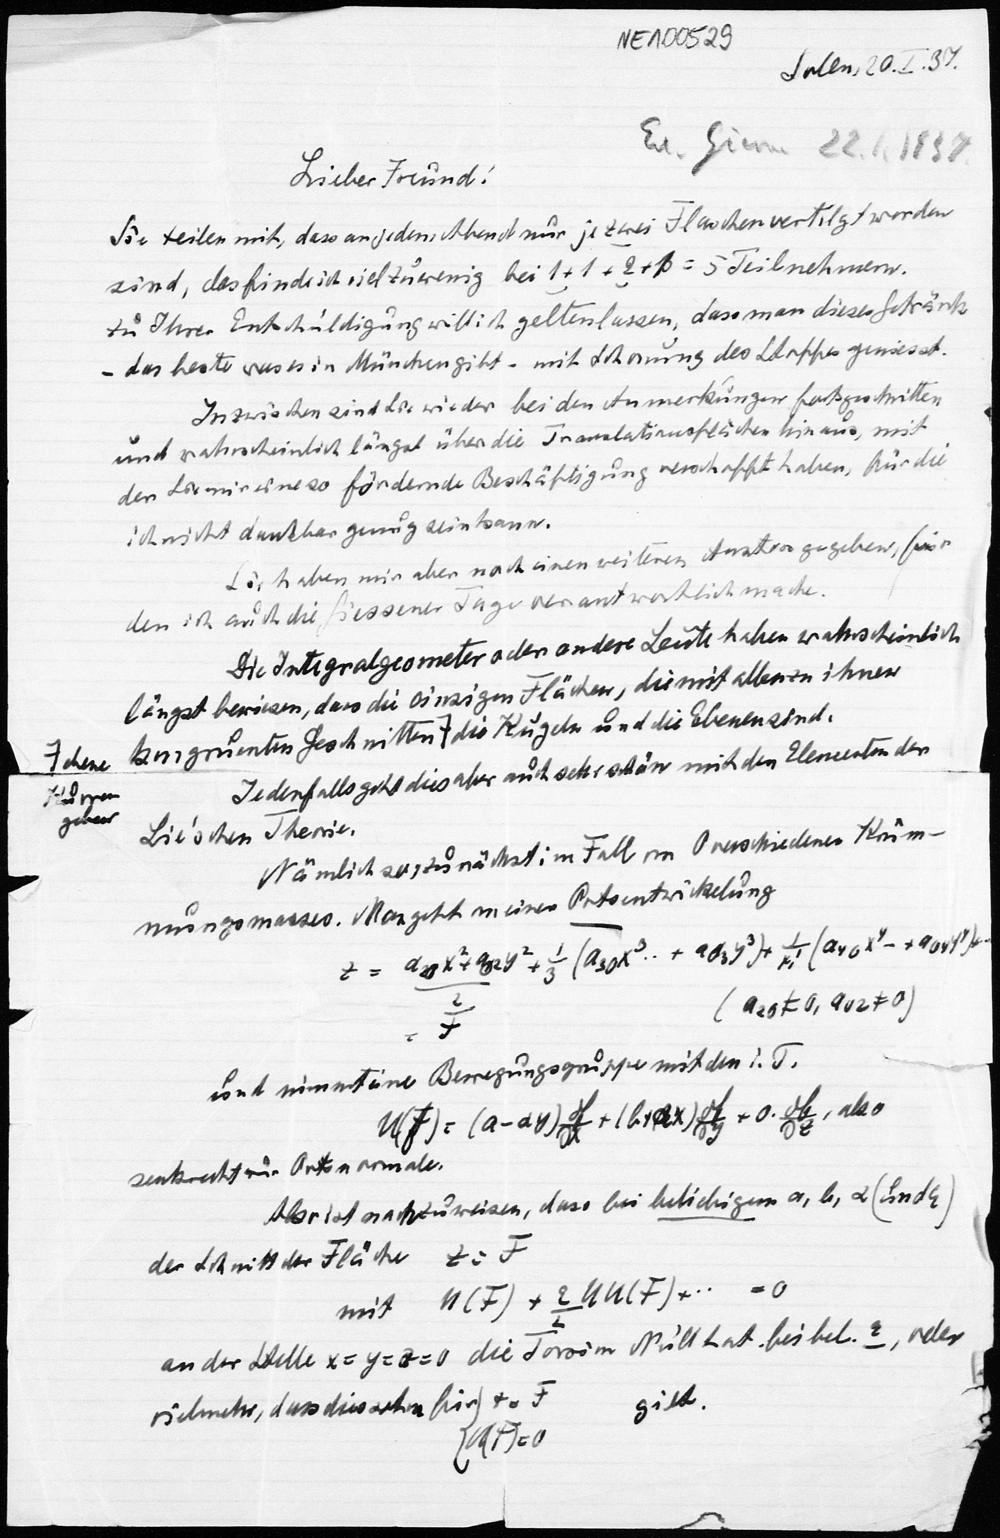 NE100529
Salem, 20.I.37.
22.1.1937.
Lieber Freund!
Sie teilen mit, dass an jedem Abend nur je zwei Flaschen vertilgt worden
sind, das finde ich viel zu wenig bei 1 + 1 + 2 + 1 = 5 Teilnehmern.
Zu Ihrer Entschuldigung will ich gelten lassen, dass man dieses Getränk
- das beste was es in München gibt - mit Schonung des Stoffes geniesst.
Inzwischen sind Sie wieder bei den Anmerkungen fortgeschritten
und wahrscheinlich längst über die Translationsflächen hinaus, mit
der Sie mir eine so fördernde Beschäftigung verschafft haben, für die
ich nicht dankbar genug sein kann.
Sie haben mir aber noch einen weiteren gegeben, für
den ich auch die Giessener Tage verantwortlich mache.
Die Integralgeometer oder andere Leute haben wahrscheinlich
längst bewiesen, dass die einzigen Flächen, die mit allen zu ihnen
kongruenten geschnitten ⌉ die Kugeln und die Ebenen sind.
⌉ ebene
Kurven
geben
Jedenfalls geht dies aber auch sehr schön mit den Elementen der
Lie'schen Theorie.
Nämlich so, zunächst im Fall von 0 verschiedenen Krüm-
mungsmasses. Man geht von einer Ortsentwickelung
z = (a20 x² + a02 y²)/2 + 1/3! (a30 x³ .. + a03 y³) + 1/4! (a40 x⁴ - + a04 y⁴) + ..
= F
(a20 ≠ 0, a02 ≠ 0)
und nimmt eine Bewegungsgruppe mit den i. T.
U(f) = (a - αy) ∂f/∂x + (b + αx) ∂f/∂y + 0 · ∂f/∂z, also
senkrecht zur Ortsnormale.
Aber ist nachzuweisen, dass bei beliebigem a, b, α (und ε)
der Schnitt der Fläche z = F
mit U(F) + ε/2 UU(F) + ·· = 0
an der Stelle x = y = z = 0 die Torsion Null hat bei bel. ε, oder
vielmehr, dass dies schon für { z = F gilt.
{ U(F) = 0